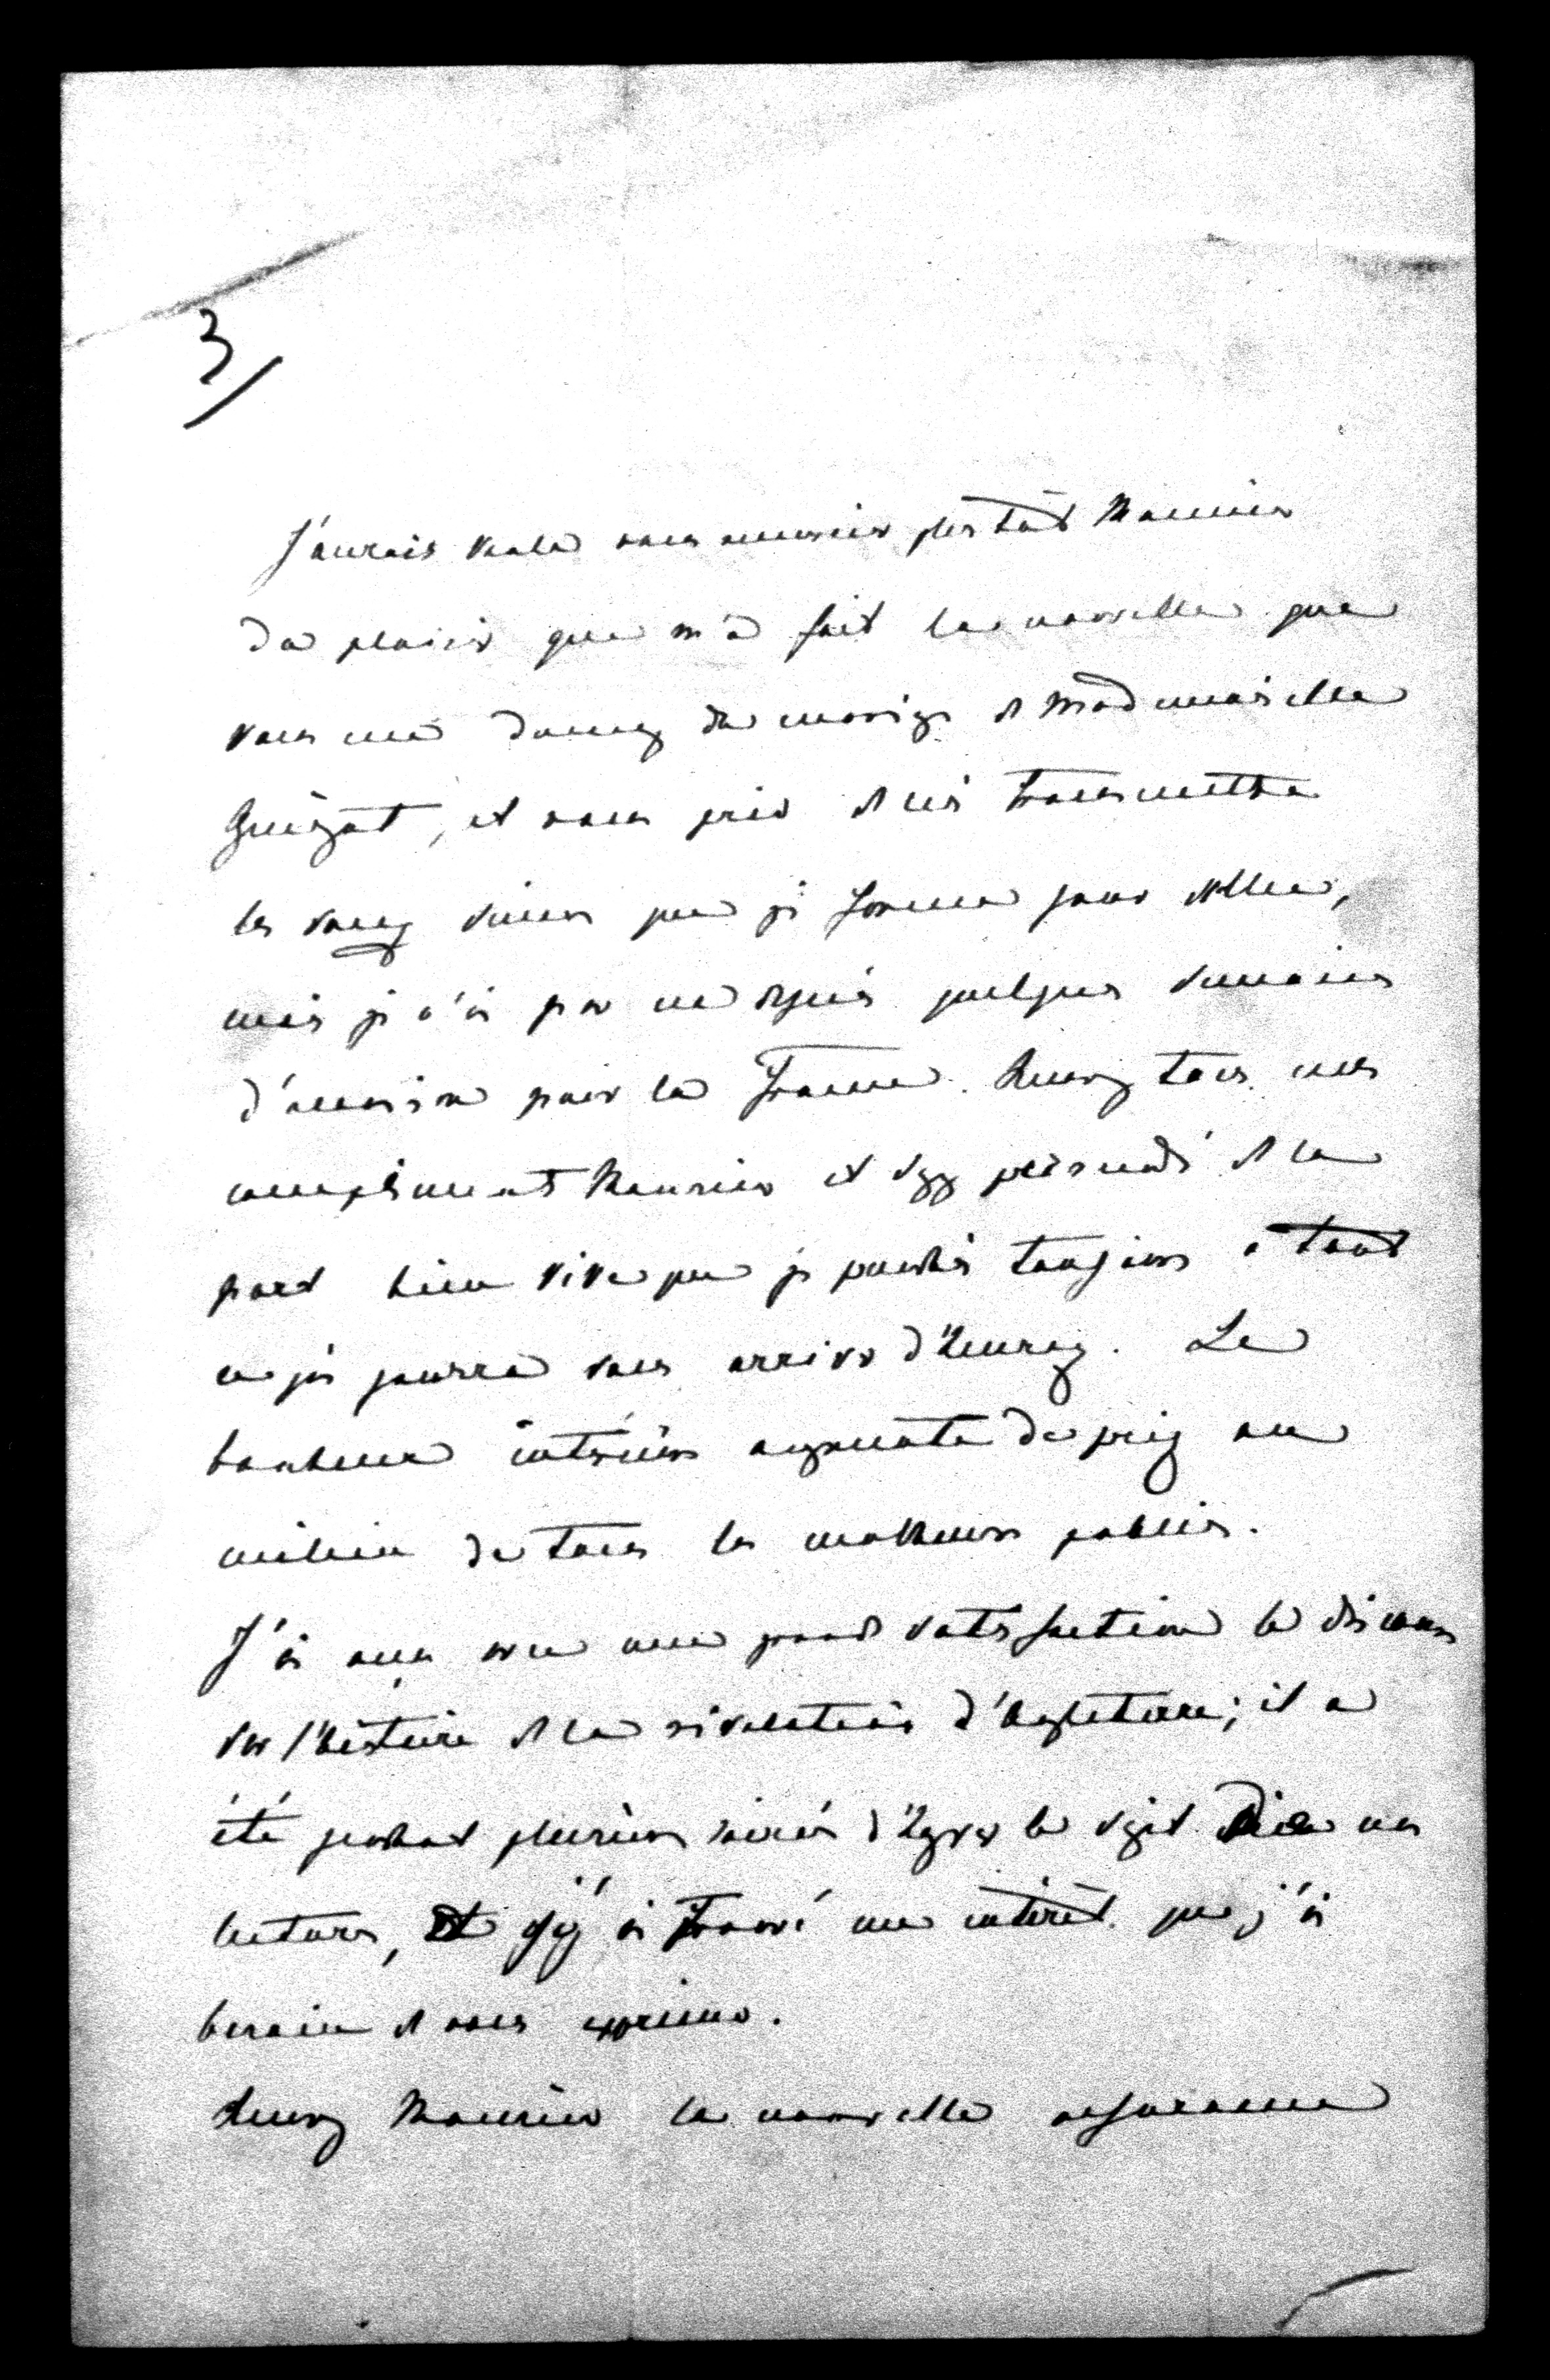 3/
J'aurais voulu vous remercier plus tôt Monsieur
du plaisir que m'a fait la nouvelle que
vous me donnez du mariage de Mademoiselle
Guizot, et vous prier de lui transmettre
les vœux sincères que je forme pour elle,
mais je n'ai pas eu depuis quelques semaines
d'occasion pour la France. Recevez tous mes
compliments Monsieur et soyez persuadé de la
part bien vive que je prendrai toujours à tout
ce qui pourra vous arriver d'heureux. Le
bonheur intérieur augmente de prix au
milieu de tous les malheurs publics.
J'ai reçu avec une grande satisfaction le discours
sur l'histoire de la révolution d'Angleterre; il a
été pendant plusieurs soirées d'hyver le sujet de nos
lectures, et j'y ai trouvé un intérêt que j'ai
besoin de vous exprimer.
Recevez Monsieur la nouvelle assurance